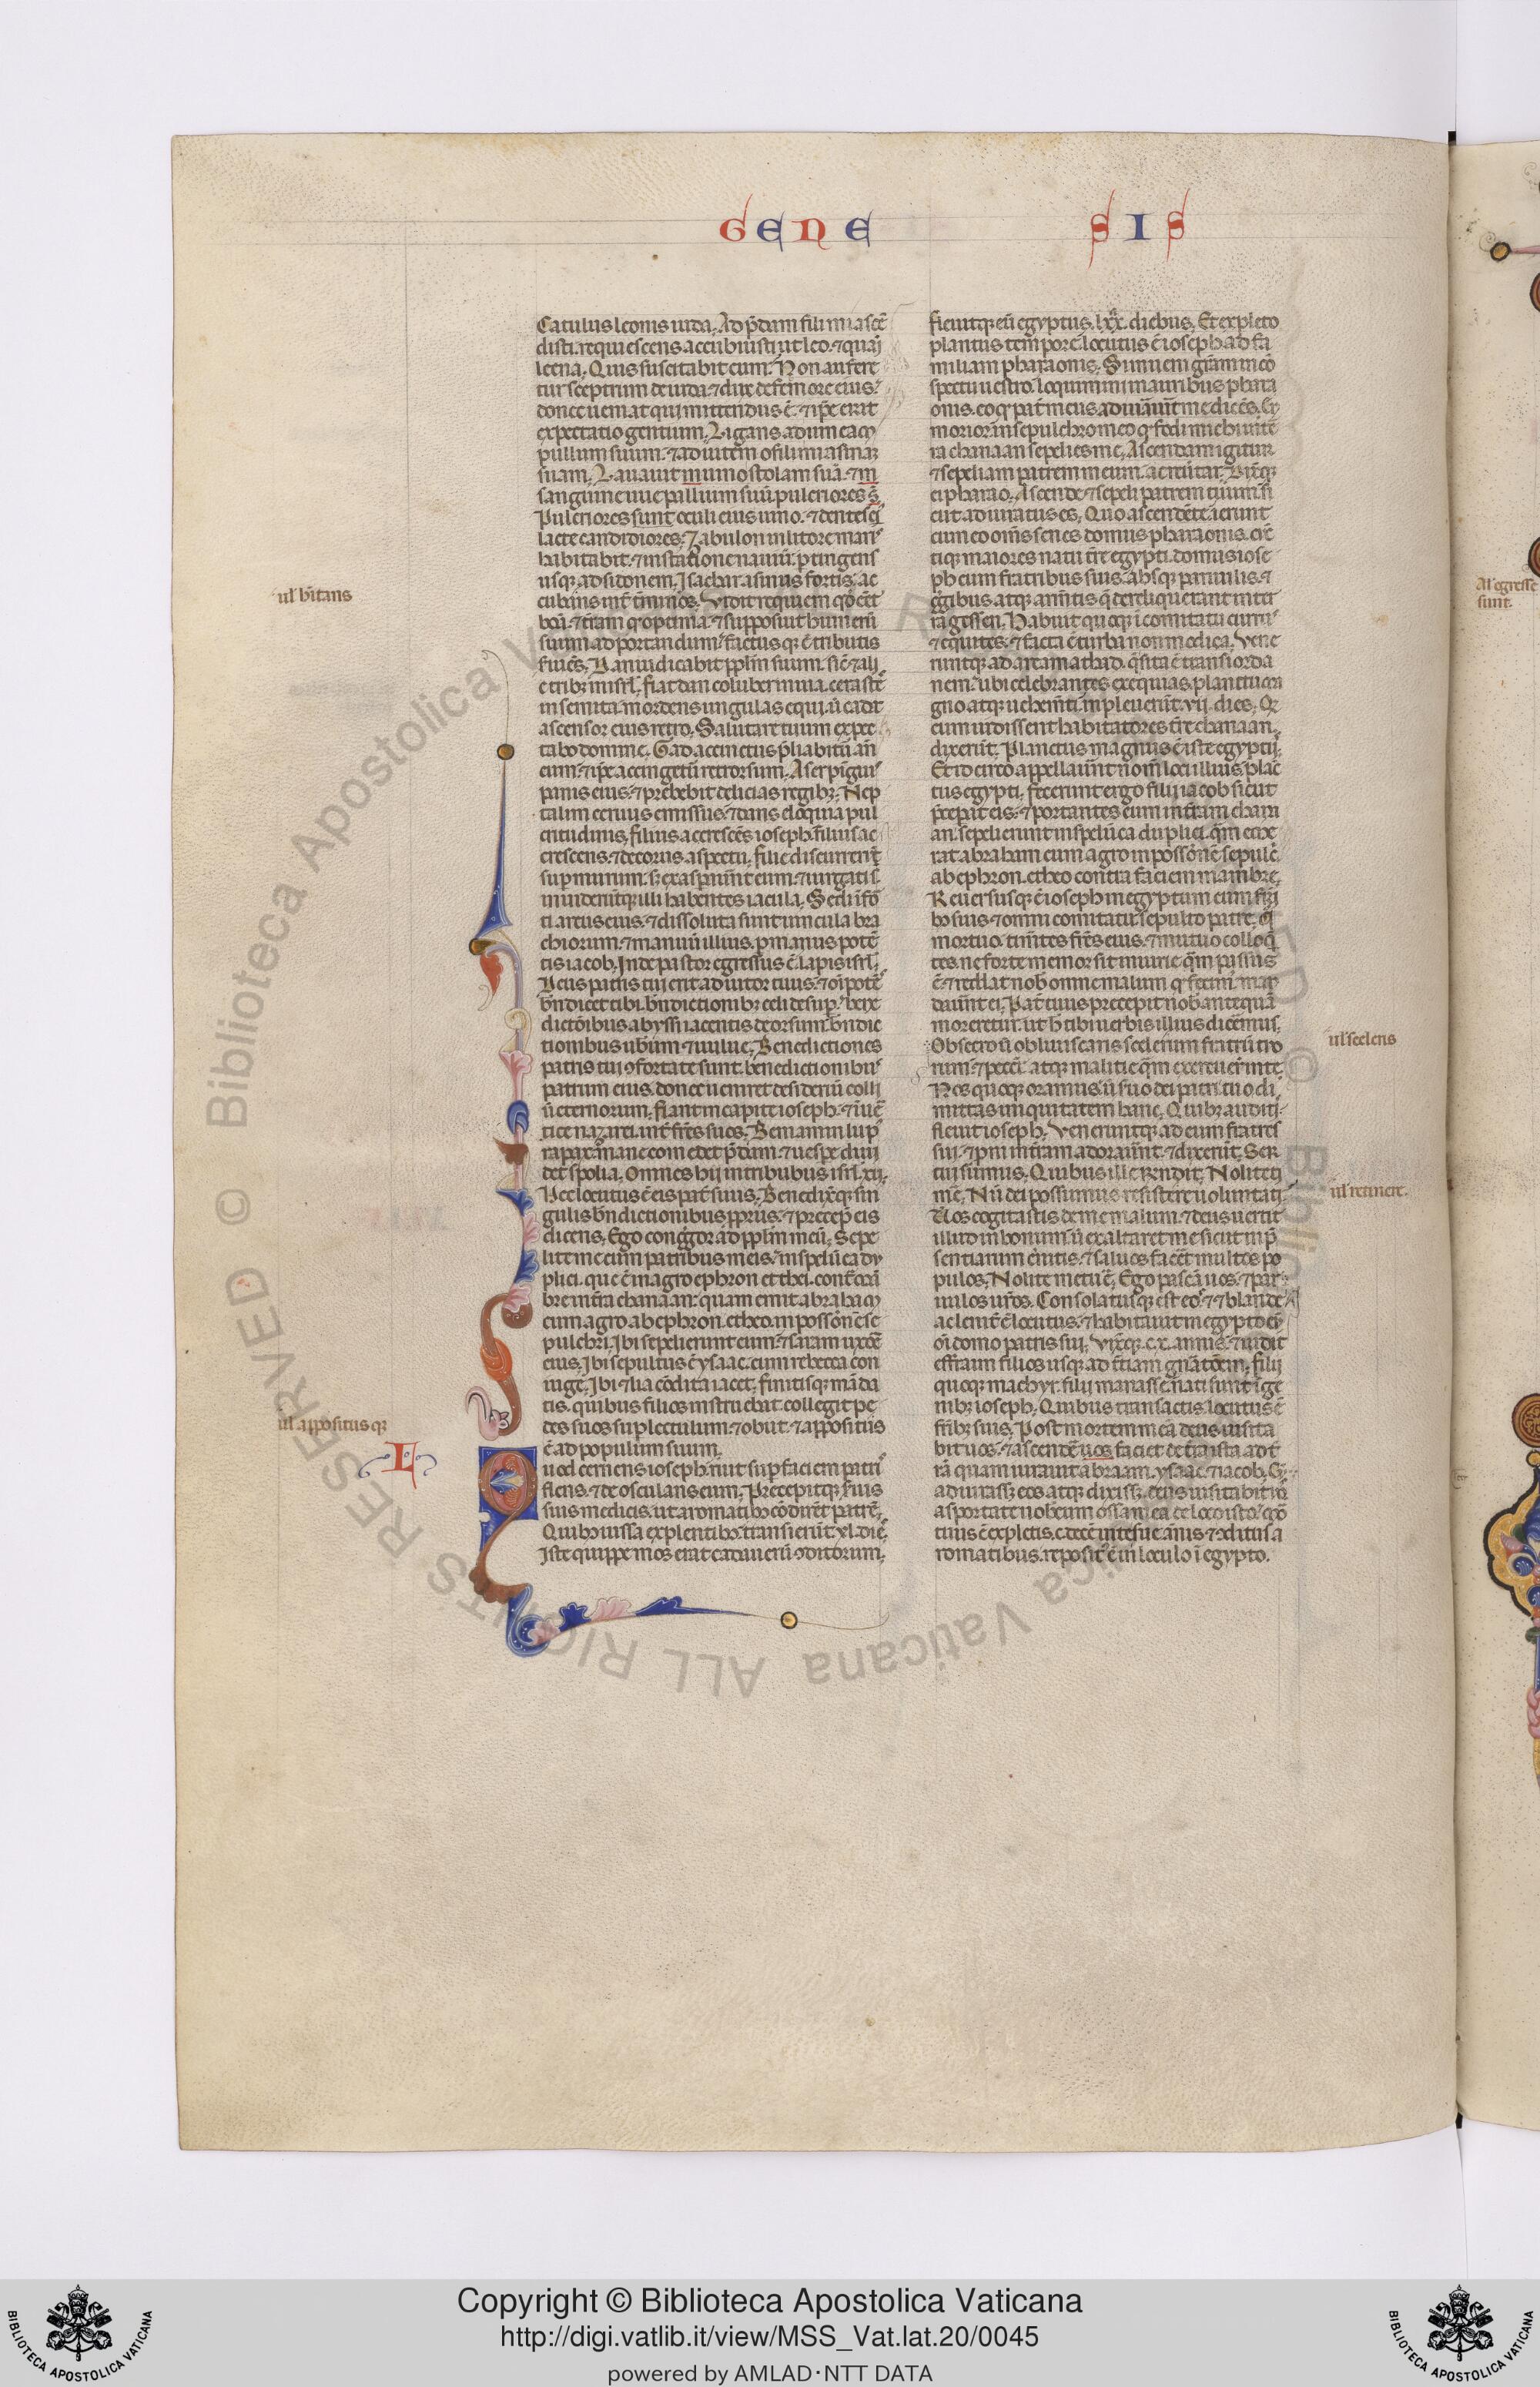 GENE SIS
Catulus leonis iuda. Ad p̄dam fili mi ascē
disti. requiescens accubuisti ut leo. ⁊ quasi
leena. Quis suscitabit eum. Non aufere
tur sceptrum de iuda. ⁊ dux de femore eius.
donec ueniat qui mittendus ē. ⁊ ip̄e erit
expectatio gentium. Ligans ad uineam
pullum suum. ⁊ ad uitem o fili mi asinaʒ
suam. Lauauit in uino stolam suā. ⁊ in
sanguine uue pallium suū. pulcriores s̄
Pulcriores sunt oculi eius uino. ⁊ dentes eiꝰ
lacte candidiores. Zabulon in litore maris
habitabit. ⁊ in statione nauiū. ptingens
usqꝫ ad sidonem. Isachar asinus fortis. ac
cubans int̄ t̄minos. Vidit requiem qd̓ eēt
bōa. ⁊ t̄ram ꝙ optima. ⁊ supposuit humerū
suum ad portandum. factusqꝫ ē tributis
seruiēs. Dan iudicabit pplm̄ suum. sic̄ ⁊ alia
tribꝫ in isrl̄. fiat dan coluber in uia. cerastes
in semita. mordens ungulas equi. ut cadat
ascensor eius retro. Salutare tuum expec
tabo domine. Gad accinctus p̄liabit̄ an̄
eum. ⁊ ip̄e accinget̄ retrorsum. Aser pinguis
panis eius. ⁊ prebebit delicias regibꝫ. Nep
talim ceruus emissus. ⁊ dans eloquia pul
critudinis. filius accrescēs ioseph. filius ac
crescens. ⁊ decorus aspectu. filie discurrerūt
sup murum. sꝫ exaspauerūt eum. ⁊ iurgati s̄
inuiderūtqꝫ illi habentes iacula. Sedit ī for
ti arcus eius. ⁊ dissoluta sunt uincula bra
chiorum. ⁊ manuū illius. p manus potē
tis iacob. Inde pastor egressus ē lapis isrl̄.
Deus patris tui erit adiutor tuus. ⁊ oīpotēs
bn̄dicet tibi. bn̄dictionibꝫ celi desup. bene
dictōibus abyssi iacentis deorsum. bn̄dic
tionibus uberum ⁊ uulue. Benedictiones
patris tui ꝯfortate sunt. benedictionibus
patrum eius. donec ueniret desideriū colli
ū eternorum. fiant in capite ioseph. ⁊ ī uer
tice nazarei. int̄ fr̄es suos. Beniamin lupꝰ
rapax. mane comedet p̄dam. ⁊ uespe diui
det spolia. Omnes hij in tribubus isrl̄ xij.
Hec locutus ē eis pat̄ suus. Benedixitqꝫ sin
gulis bn̄dictionibus pprijs. ⁊ precepit eis
dicens. Ego congregor ad pplm̄ meū. Sepe
lite me cum patribus meis. in spelūca du
plici. que ē in agro ephron etthei. contra mā
bre in t̄ra chanaan. quam emit abraham
cum agro ab ephron. etheo. in possōnē se
pulchri. Ibi sepelierunt eum. ⁊ saram uxorē
eius. Ibi sepultus ē ysaac. cum rebecca con
iuge. Ibi ⁊ lia cōdita iacet. finitisqꝫ māda
tis. quibus filios instruebat. collegit pe
des suos sup lectulum. ⁊ obijt. ⁊ appositus
ē ad populum suum.
Quod cernens ioseph. ruit sup faciem patris
flens. ⁊ deosculans eum. Precepitqꝫ seruis
suis medicis. ut aromatibꝫ cōdirēt patrē.
Quibꝫ iussa explentibꝫ. transierūt xl. dies.
Iste quippe mos erat cadauerū ꝯditorum.
fleuitqꝫ eū egyptus. lxx. diebus. Et expleto
planctus tempore. locutus ē ioseph ad fa
miliam pharaonis. Si inueni gr̄am in cō
spectu uestro. loquimini in auribus phara
onis. eo ꝙ pat̄ meus adiurau̅it me dicēs. En
morior. in sepulchro meo ꝙ fodi mihi in ter
ra chanaan sepelies me. Ascendam igitur
⁊ sepeliam patrem meum. ac reūtar. Dixitqꝫ
ei pharao. Ascende ⁊ sepeli patrem tuum. si
cut adiuratus es. Quo ascendēte. ierunt
cum eo om̄s senes domus pharaonis. cūc
tiqꝫ maiores natu t̄re egypti. domus iose
ph cum fratribus suis. absqꝫ paruulis. ⁊
gregibus atqꝫ arm̄tis q̄ dereliquerant in ter
ra gessen. Habuit quoqꝫ ī comitatu currus
⁊ equites. ⁊ facta ē turba non modica. Vene
runtqꝫ ad aream athad. q̄ sita ē trans iorda
nem. ubi celebrantes exequias. planctu ma
gno atqꝫ uehem̄ti. impleuerūt. vij. dies. Qd̓
cum uidissent habitatores t̄re chanaan.
dixerūt. Planctus magnus ē iste egyptijs.
Et idcirco appellauerūt nom̄ loci illius. planc
tus egypti. fecerunt ergo filij iacob sicut
p̄ceperat eis. ⁊ portantes eum in t̄ram chana
an. sepelierunt in spelūca duplici. quā eme
rat abraham cum agro in possōnē sepulcri
ab ephron. etheo contra faciem mambre.
Reuersusqꝫ ē ioseph in egyptum cum fr̄i
bꝫ suis. ⁊ omni comitatu. sepulto patre. Quo
mortuo. tim̄tes fr̄es eius. ⁊ mutuo colloquē
tes. ne forte memor sit iniurie quā passus
ē. ⁊ reddat nob̄ omne malum ꝙ fecimꝰ. man
dauerūt ei. Pat̄ tuus precepit nob̄ antequā
moreretur. ut h̄ tibi uerbis illius diceremus.
Obsecro ut obliuiscaris scelerum fratrū tuo
rum. ⁊ peccī atqꝫ malitie quā exercuer̄ in te.
Nos quoqꝫ oramus. ut s̄uo dei patris tui di
mittas iniquitatem hanc. Quibꝫ auditis
fleuit ioseph. Veneruntqꝫ ad eum fratres
sui. ⁊ pni in t̄ram adorauerūt. ⁊ dixerūt. Ser
tui sumus. Quibus ille rn̄dit. Nolite ti
mē. Nū dei possumus resistere uoluntati
Uos cogitastis de me malum. ⁊ deus uertit
illud in bonum. ut exaltaret me sicut in p̄
sentiarum cernitis. ⁊ saluos facēt multos po
pulos. Nolite metuē. Ego pascā uos. ⁊ par
uulos ur̄os. Consolatusqꝫ est eos. ⁊ blande
ac lenit̄ ē locutus. ⁊ habitauit in egypto cū
oī domo patris sui. Vixitqꝫ c.x. annis. ⁊ uidit
effraim filios usqꝫ ad t̄tiam gn̄atōem. filij
quoqꝫ machyr. filij manasse. nati sunt ī ge
nibꝫ ioseph. Quibus transactis. locutus ē
fr̄ibꝫ suis. Post mortem meā deus uisita
bit uos. ⁊ ascendē uos faciet de t̄ra ista ad t̄
rā quam iurauit abraam. ysaac. ⁊ iacob. Cū
adiurasset eos atqꝫ dixisset. deus uisitabit uos
asportate uobcum ossa mea de loco isto. mōr
tuus ē expletis. c. decē uite sue annis. ⁊ ꝯditus a
romatibus. repositꝰ ē in loculo ī egypto.
ul̓ hītans
ul̓ appositusqꝫ
L
ul̓ sceleris
ul̓ retinere.
Al̓ egresse
sunt.
© Biblioteca Apostolica Vaticana ALL RIGHTS RESERVED
Copyright © Biblioteca Apostolica Vaticana
http://digi.vatlib.it/view/MSS_Vat.lat.20/0045
powered by AMLAD·NTT DATA
BIBLIOTECA APOSTOLICA VATICANA
BIBLIOTECA APOSTOLICA VATICANA